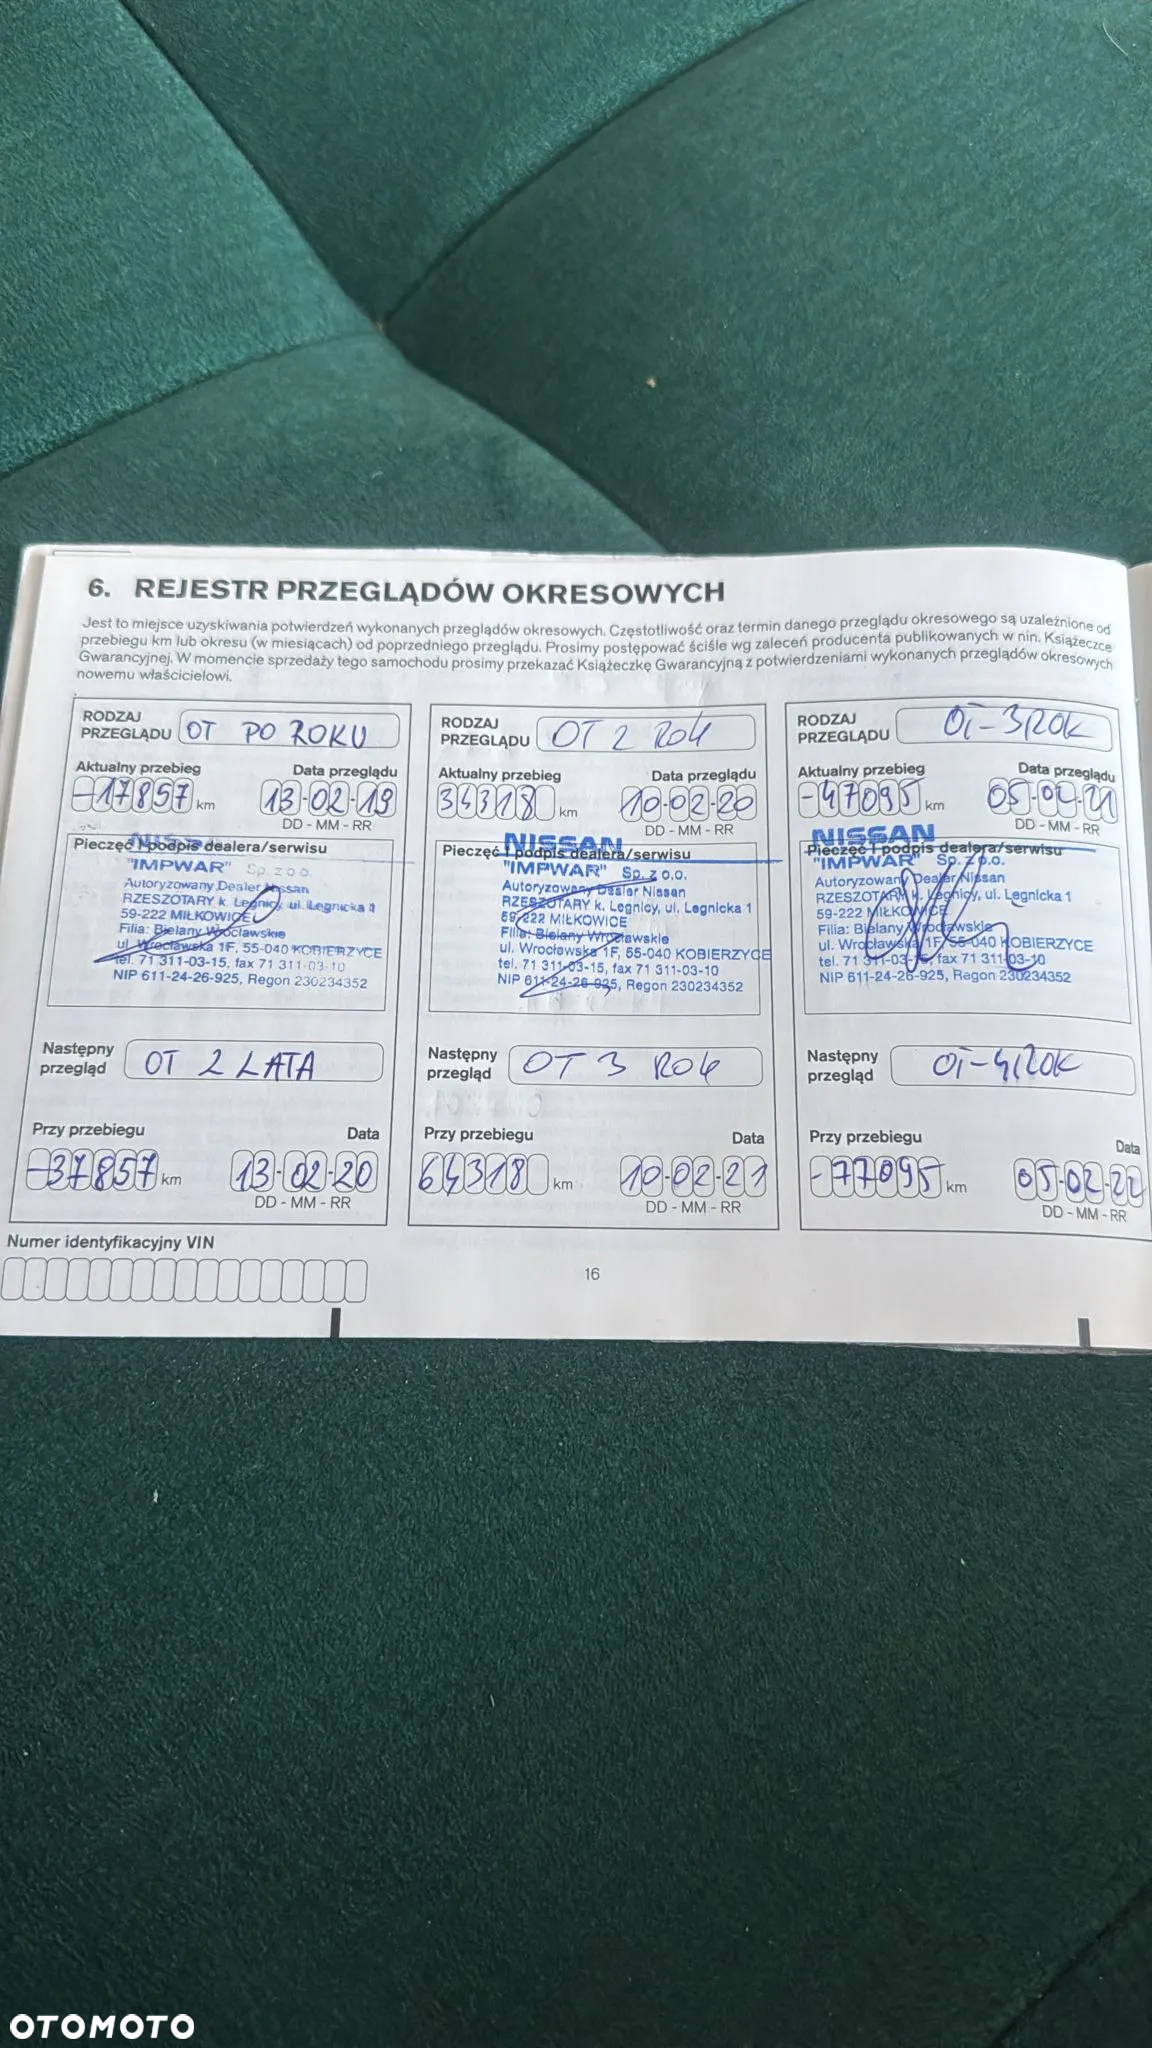 6. REJESTR PRZEGLĄDÓW OKRESOWYCH
Jest to miejsce uzyskiwania potwierdzeń wykonanych przeglądów okresowych. Częstotliwość oraz termin danego przeglądu okresowego są uzależnione od
przebiegu km lub okresu (w miesiącach) od poprzedniego przeglądu. Prosimy postępować ściśle wg zaleceń producenta publikowanych w nin. Książeczce
Gwarancyjnej. W momencie sprzedaży tego samochodu prosimy przekazać Książeczkę Gwarancyjną z potwierdzeniami wykonanych przeglądów okresowych
nowemu właścicielowi.
RODZAJ
PRZEGLĄDU OT PO ROKU
Aktualny przebieg Data przeglądu
-17857 km 13-02-19
DD - MM - RR
Pieczęć i podpis dealera/serwisu
"IMPWAR" Sp. z o.o.
Autoryzowany Dealer Nissan
RZESZOTARY k. Legnicy, ul. Legnicka 1
59-222 MIŁKOWICE
Filia: Bielany Wrocławskie
ul. Wrocławska 1F, 55-040 KOBIERZYCE
tel. 71 311-03-15, fax 71 311-03-10
NIP 611-24-26-925, Regon 230234352
Następny
przegląd OT 2 LATA
Przy przebiegu Data
-37857 km 13-02-20
DD - MM - RR
RODZAJ
PRZEGLĄDU OT 2 ROK
Aktualny przebieg Data przeglądu
34318 km 10-02-20
DD - MM - RR
NISSAN
Pieczęć i podpis dealera/serwisu
"IMPWAR" Sp. z o.o.
Autoryzowany Dealer Nissan
RZESZOTARY k. Legnicy, ul. Legnicka 1
59-222 MIŁKOWICE
Filia: Bielany Wrocławskie
ul. Wrocławska 1F, 55-040 KOBIERZYCE
tel. 71 311-03-15, fax 71 311-03-10
NIP 611-24-26-925, Regon 230234352
Następny
przegląd OT 3 ROK
Przy przebiegu Data
64318 km 10-02-21
DD - MM - RR
RODZAJ
PRZEGLĄDU OT-3 ROK
Aktualny przebieg Data przeglądu
-47095 km 05-02-21
DD - MM - RR
NISSAN
Pieczęć i podpis dealera/serwisu
"IMPWAR" Sp. z o.o.
Autoryzowany Dealer Nissan
RZESZOTARY k. Legnicy, ul. Legnicka 1
59-222 MIŁKOWICE
Filia: Bielany Wrocławskie
ul. Wrocławska 1F, 55-040 KOBIERZYCE
tel. 71 311-03-15, fax 71 311-03-10
NIP 611-24-26-925, Regon 230234352
Następny
przegląd OT-4 ROK
Przy przebiegu Data
-77095 km 05-02-22
DD - MM - RR
Numer identyfikacyjny VIN
16
OTOMOTO